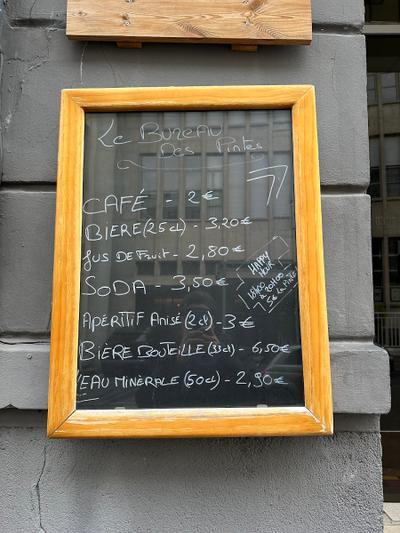 Le Bureau
Des Pintes
CAFÉ - 2€
BIERE (25cl) - 3,20€
Jus DE Fruit - 2,80€
SODA - 3,50€
APÉRITIF Anisé (2cl) - 3€
BIÈRE BOUTEILLE (33cl) - 6,50€
EAU MINÉRALE (50cl) - 2,90€
HAPPY
HOUR
18H00
à 20H00
5€ LA PINTE